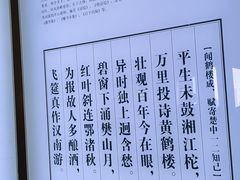 [闻鹤楼成，赋寄楚中一二知己]
平生未鼓湘江柁，
万里投诗黄鹤楼。
壮观百年今在眼，
异时独上迥含愁。
碧窗下涌樊山月，
红叶斜连鄂渚秋。
为报故人多酿酒，
飞筵真作汉南游。